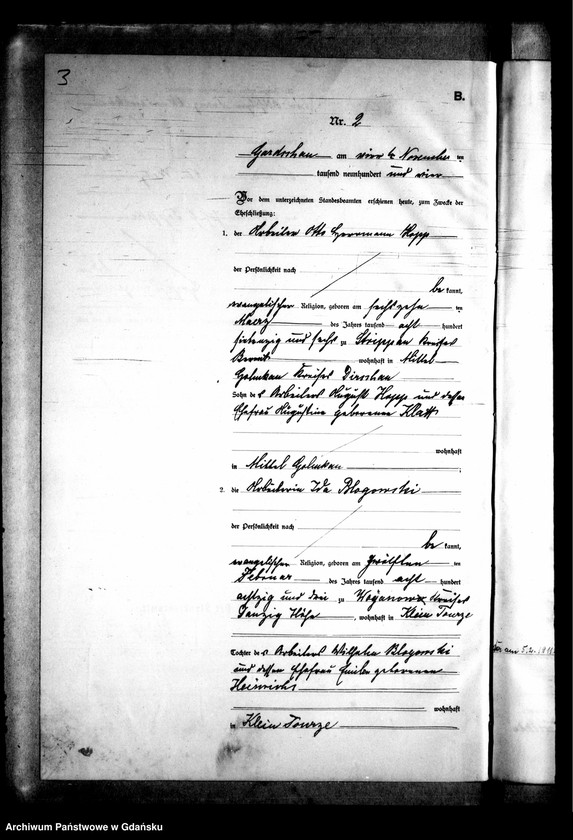 3
B.
Nr. 2
Gardschau am vier ten November ten
tausend neunhundert und vier
Vor dem unterzeichneten Standesbeamten erschienen heute, zum Zwecke der
Eheschließung:
1. der Arbeiter Otto Herrmann Hopp
der Persönlichkeit nach
be kannt,
evangelischer Religion, geboren am sechszehn ten
Maerz des Jahres tausend acht hundert
siebenzig und sechs zu Strippau Kreises
Berent wohnhaft in Mittel
Golmkau Kreises Dirschau
Sohn des Arbeiters August Hopp und dessen
Ehefrau Augustine geborenen Klatt
wohnhaft
in Mittel Golmkau
2. die Arbeiterin Ida Blogowski
der Persönlichkeit nach
be kannt,
evangelischen Religion, geboren am zwölften ten
Februar des Jahres tausend acht hundert
achtzig und drei zu Woyanow Kreises
Danzig Höhe, wohnhaft in Klein Tourze
Tochter des Arbeiters Wilhelm Blogowski
und dessen Ehefrau Emilie geborenen
Heinrichs
wohnhaft
in Klein Tourze
am 5.
Archiwum Państwowe w Gdańsku